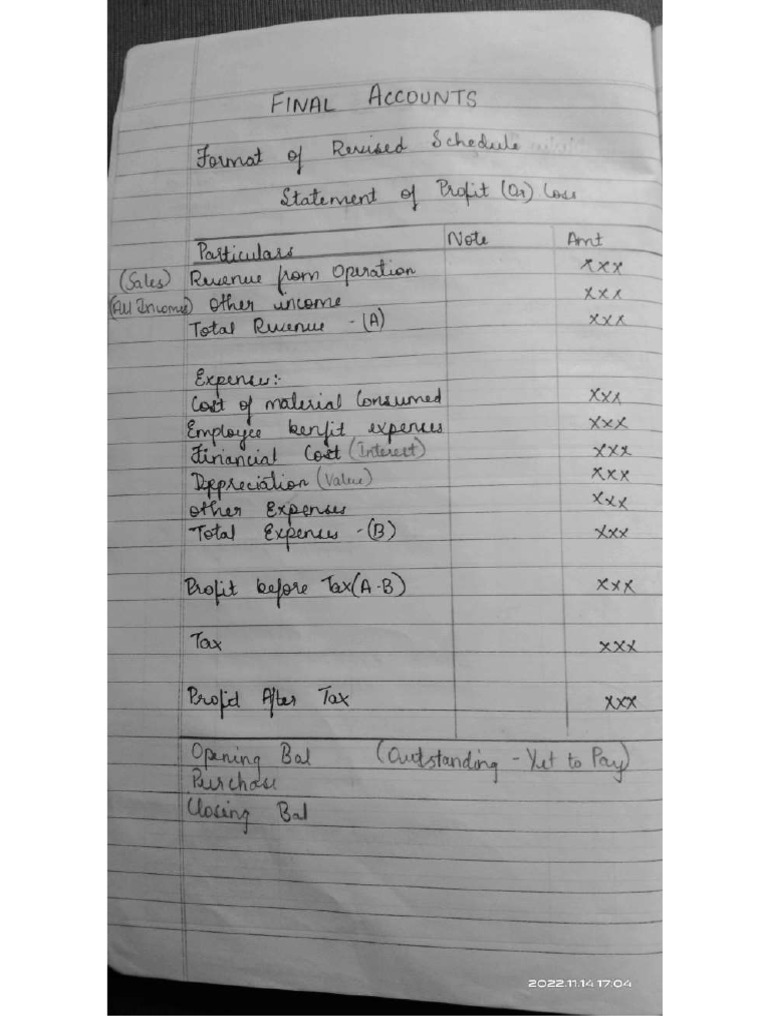 FINAL ACCOUNTS
Format of Revised Schedule
Statement of Profit (Or) Loss
Particulars Note Amt
(Sales) Revenue from Operation xxx
(All Incomes) Other income xxx
Total Revenue - (A) xxx
Expenses:-
Cost of material Consumed xxx
Employee benfit expenses xxx
Financial Cost (Interest) xxx
Depreciation (Value) xxx
Other Expenses xxx
Total Expenses - (B) xxx
Profit before Tax (A-B) xxx
Tax xxx
Profit After Tax xxx
Opening Bal (Outstanding - Yet to Pay)
Purchase
Closing Bal
2022.11.14 17:04